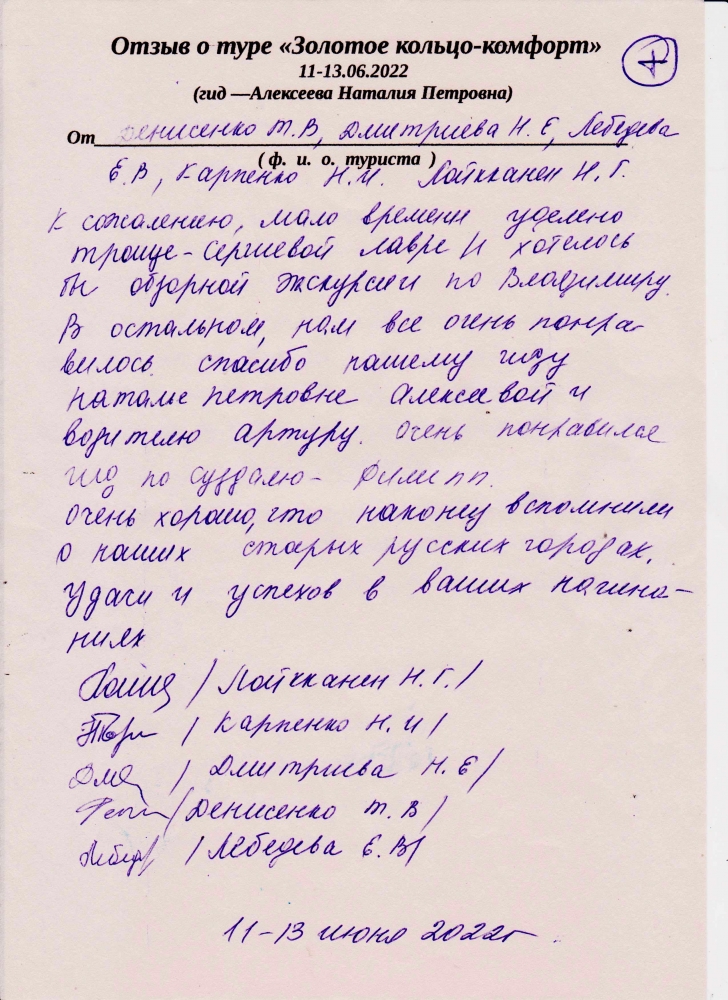 Отзыв о туре «Золотое кольцо-комфорт»
11-13.06.2022
(гид —Алексеева Наталия Петровна)
От Денисенко Т.В, Дмитриева Н.Е, Лебедева
( ф. и. о. туриста )
Е.В, Карпенко Н.И. Лойкканен Н.Г.
К сожалению, мало времени уделено
троице-Сергиевой лавре и хотелось
бы обзорной экскурсии по Владимиру.
В остальном, нам все очень понра-
вилось. спасибо нашему гиду
наталье петровне Алексеевой и
водителю артуру. очень понравился
гид по суздалю - Филипп.
очень хорошо, что наконец вспомнили
о наших старых русских городах.
Удачи и успехов в ваших начина-
ниях
/ Лойкканен Н.Г./
/ Карпенко Н.И/
/ Дмитриева Н.Е/
/ Денисенко Т.В/
/ Лебедева Е.В/
11-13 июня 2022г.